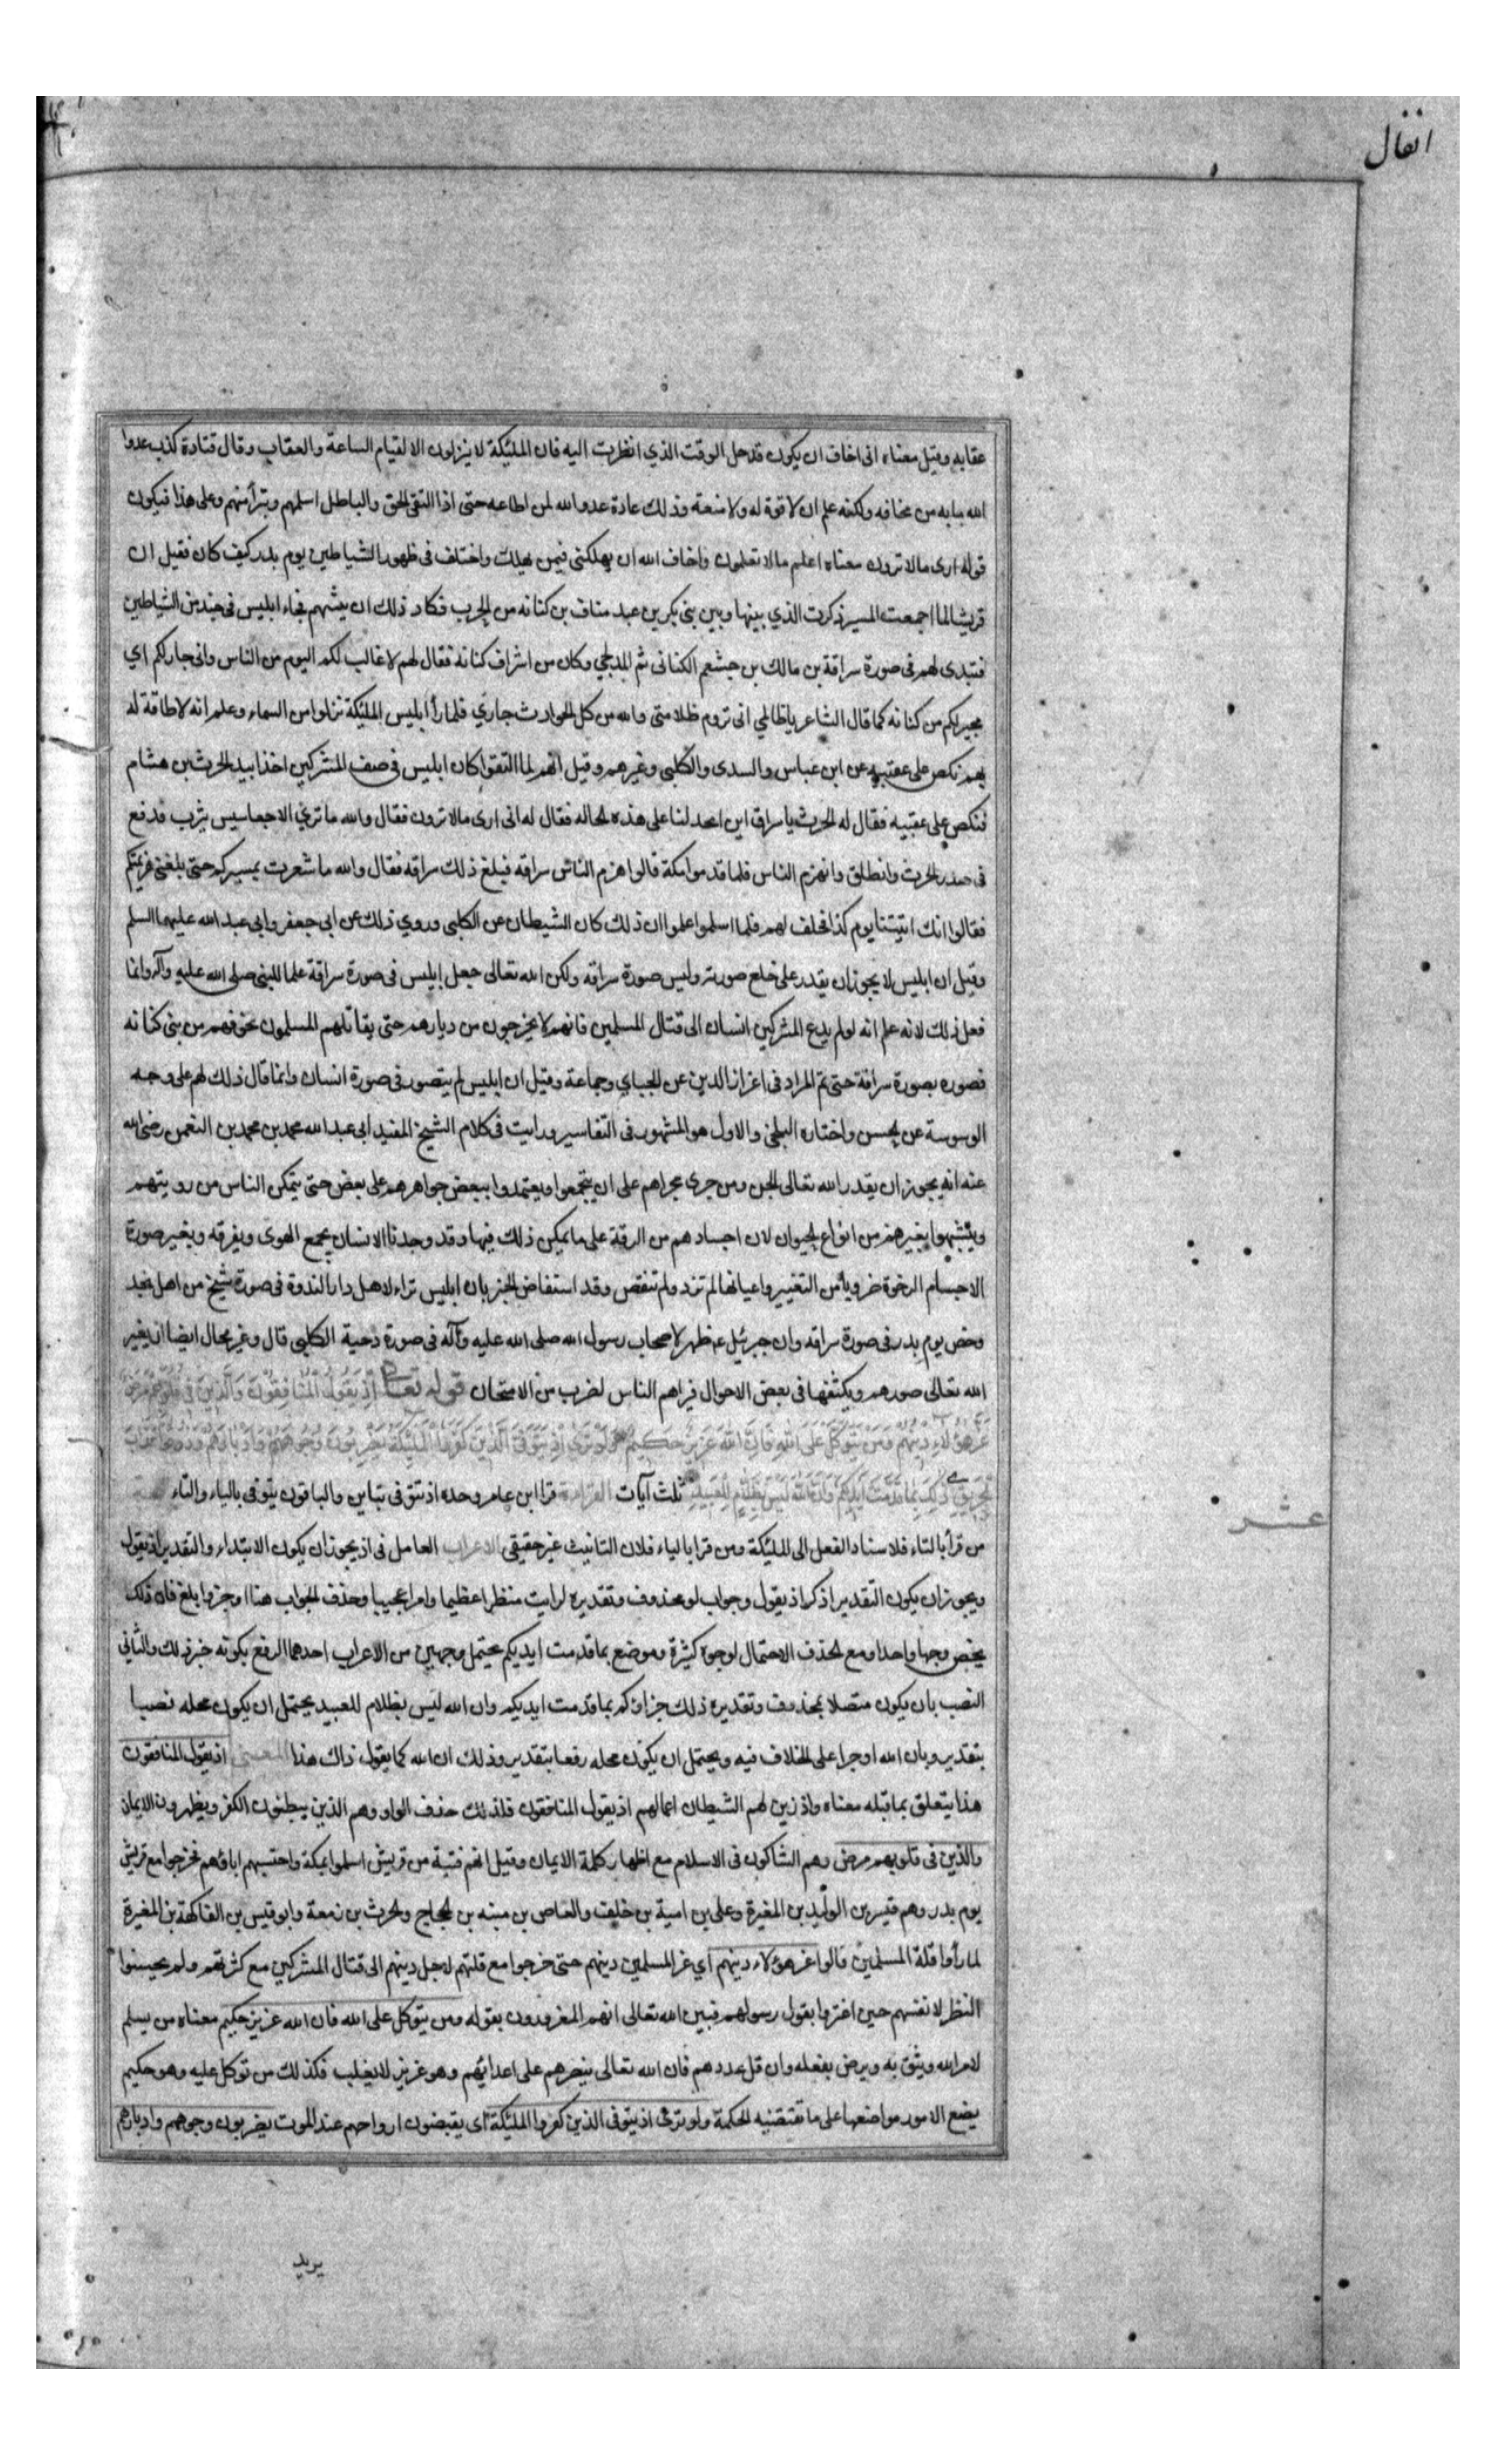 انفال
عقابه وقيل معناه انى اخاف ان يكون قد حل الوقت الذي انظرت اليه فان الملئكة لا ينزلون الا لقيام الساعة والعقاب وقال قتادة كذب عدوا
الله ما به من مخافه ولكنه علم ان لا قوة له ولا منعة وذلك عادة عدو الله لمن اطاعه حتى اذا التقى الحق والباطل اسلمهم وتبرأ منهم وعلى هذا فيكون
قوله ارى مالا ترون معناه اعلم مالا تعلمون واخاف الله ان يهلكنى فيمن يهلك واختلف فى ظهور الشياطين يوم بدر كيف كان فقيل ان
قريشا لما اجمعت المسير ذكرت الذي بينها وبين بنى بكر بن عبد مناف بن كنانه من الحرب فكاد ذلك ان يثنيهم فجاء ابليس فى جند من الشياطين
فتبدى لهم فى صورة سراقة بن مالك بن جشعم الكنانى ثم المدلجي وكان من اشراف كنانه فقال لهم لا غالب لكم اليوم من الناس وانى جار لكم اي
مجيركم من كنانه كما قال الشاعر يا ظالمي انى تروم ظلامتى والله من كل الحوادث جاري فلما رأ ابليس الملئكة نزلوا من السماء وعلم انه لا طاقة له
بهم نكص على عقبيه عن ابن عباس والسدى والكلبى وغيرهم وقيل انهم لما التقوا كان ابليس فى صف المشركين اخذا بيد الحرث بن هشام
فنكص على عقبيه فقال له الحرث يا سراق اين اتخذ لنا على هذه الحاله فقال له انى ارى مالا ترون فقال والله ما تري الا جعاسيس يثرب فدفع
فى صدر الحرث وانطلق وانهزم الناس فلما قدموا مكة قالوا هزم الناس سراقه فبلغ ذلك سراقه فقال والله ما شعرت بمسيركم حتى بلغنى هزيمتكم
فقالوا انك اتيتنا يوم كذا فحلف لهم فلما اسلموا علموا ان ذلك كان الشيطان عن الكلبى وروي ذلك عن ابى جعفر وابى عبد الله عليهما السلم
وقيل ان ابليس لا يجوز ان يقدر على خلع صورته وليس صورة سراقه ولكن الله تعالى جعل ابليس فى صورة سراقة علما للنبى صلى الله عليه وآله وانما
فعل ذلك لانه علم انه لو لم يدع المشركين انسان الى قتال المسلمين فانهم لا يخرجون من ديارهم حتى يقاتلهم المسلمون لخوفهم من بنى كنانه
فصوره بصورة سراقة حتى تم المراد فى اعزاز الدين عن الجباي وجماعة وقيل ان ابليس لم يتصور فى صورة انسان وانما قال ذلك لهم على وجه
الوسوسة عن الحسن واختاره البلخى والاول هو المشهور فى التفاسير ورايت فى كلام الشيخ المفيد ابى عبد الله محمد بن محمد بن النعمن رضى الله
عنه انه يجوز ان يقدر الله تعالى الجن ومن جرى مجراهم على ان يتجمعوا ويعتمدوا ببعض جواهرهم على بعض حتى يتمكن الناس من رويتهم
ويتشبهوا بغيرهم من انواع الحيوان لان اجسادهم من الرقة على ما يمكن ذلك فيها وقد وجدنا الانسان يجمع الهوى ويفرقه ويغير صورة
الاجسام الرخوة ضروبا من التغيير واعيانها لم تزد ولم تنقص وقد استفاض الخبر بان ابليس تراءا لاهل دار الندوة فى صورة شيخ من اهل نجد
وحضر يوم بدر فى صورة سراقه وان جبرئيل ع ظهر لاصحاب رسول الله صلى الله عليه وآله فى صورة دحية الكلبى قال وغير محال ايضا ان يغير
الله تعالى صورهم ويكثفها فى بعض الاحوال فيراهم الناس لضرب من الامتحان قوله تعالى اِذ يَقُولُ الْمُنَافِقُونَ وَالَّذِينَ فى قُلُوبِهِمْ مَرَضٌ
غَرَّ هؤُلاءِ دِينُهُمْ وَمَنْ يَتَوَكَّلْ عَلَى اللهِ فَاِنَّ اللهَ عَزِيزٌ حَكِيمٌ وَلَوْ تَرَى اِذْ يَتَوَفَّى الَّذِينَ كَفَرُوا الْمَلئِكَةُ يَضْرِبُونَ وُجُوهَهُمْ وَاَدْبَارَهُمْ وَذُوقُوا عَذَابَ
الْحَرِيقِ ذلِكَ بِمَا قَدَّمَتْ اَيْدِيكُمْ وَاَنَّ اللهَ لَيْسَ بِظَلَّامٍ لِلْعَبِيدِ ثلث آيات القراءة قرا ابن عامر وحده اذ تتوفى بتاين والباقون يتوفى بالياء والتاء
عشر
من قرأ بالتاء فلاسناد الفعل الى الملئكة ومن قرا بالياء فلان التانيث غير حقيقى الاعراب العامل فى اذ يجوز ان يكون الابتداء والتقدير اذ يقول
ويجوز ان يكون التقدير اذكر اذ يقول وجواب لو محذوف وتقديره لرايت منظرا عظيما وامرا عجيبا وحذف الجواب هنا اوجز وابلغ فان ذلك
يخص وجها واحدا ومع الحذف الاحتمال لوجوه كثيرة وموضع بما قدمت ايديكم يحتمل وجهين من الاعراب احدهما الرفع بكونه خبر ذلك والثانى
النصب بان يكون متصلا بمحذوف وتقديره ذلك جزاؤكم بما قدمت ايديكم وان الله ليس بظلام للعبيد يحتمل ان يكون محله نصبا
بتقدير وبان الله او جرا على الخلاف فيه ويحتمل ان يكون محله رفعا بتقدير وذلك ان الله كما يقول ذاك هذا المعنى اذ يقول المنافقون
هذا يتعلق بما قبله معناه واذ زين لهم الشيطان اعمالهم اذ يقول المنافقون فلذلك حذف الواو وهم الذين يبطنون الكفر ويظهرون الايمان
والذين فى قلوبهم مرض وهم الشاكون فى الاسلام مع اظهار كلمة الايمان وقيل انهم فتية من قريش اسلموا بمكة واحتبسهم اباؤهم فخرجوا مع قريش
يوم بدر وهم قيس بن الوليد بن المغيرة وعلى بن امية بن خلف والعاص بن منبه بن الحجاج والحرث بن زمعة وابو قيس بن الفاكهة بن المغيرة
لما رأوا قلة المسلمين قالوا غر هؤلاء دينهم اي غر المسلمين دينهم حتى خرجوا مع قلتهم لاجل دينهم الى قتال المشركين مع كثرتهم ولم يحسنوا
النظر لانفسهم حين اغتروا بقول رسولهم فبين الله تعالى انهم المغرورون بقوله ومن يتوكل على الله فان الله عزيز حكيم معناه من يسلم
لامر الله ويثق به ويرض بفعله وان قل عددهم فان الله تعالى ينصرهم على اعدائهم وهو عزيز لا يغلب فكذلك من توكل عليه وهو حكيم
يضع الامور مواضعها على ما تقتضيه الحكمة ولو ترى اذ يتوفى الذين كفروا الملئكة اى يقبضون ارواحهم عند الموت يضربون وجوههم وادبارهم
يريد